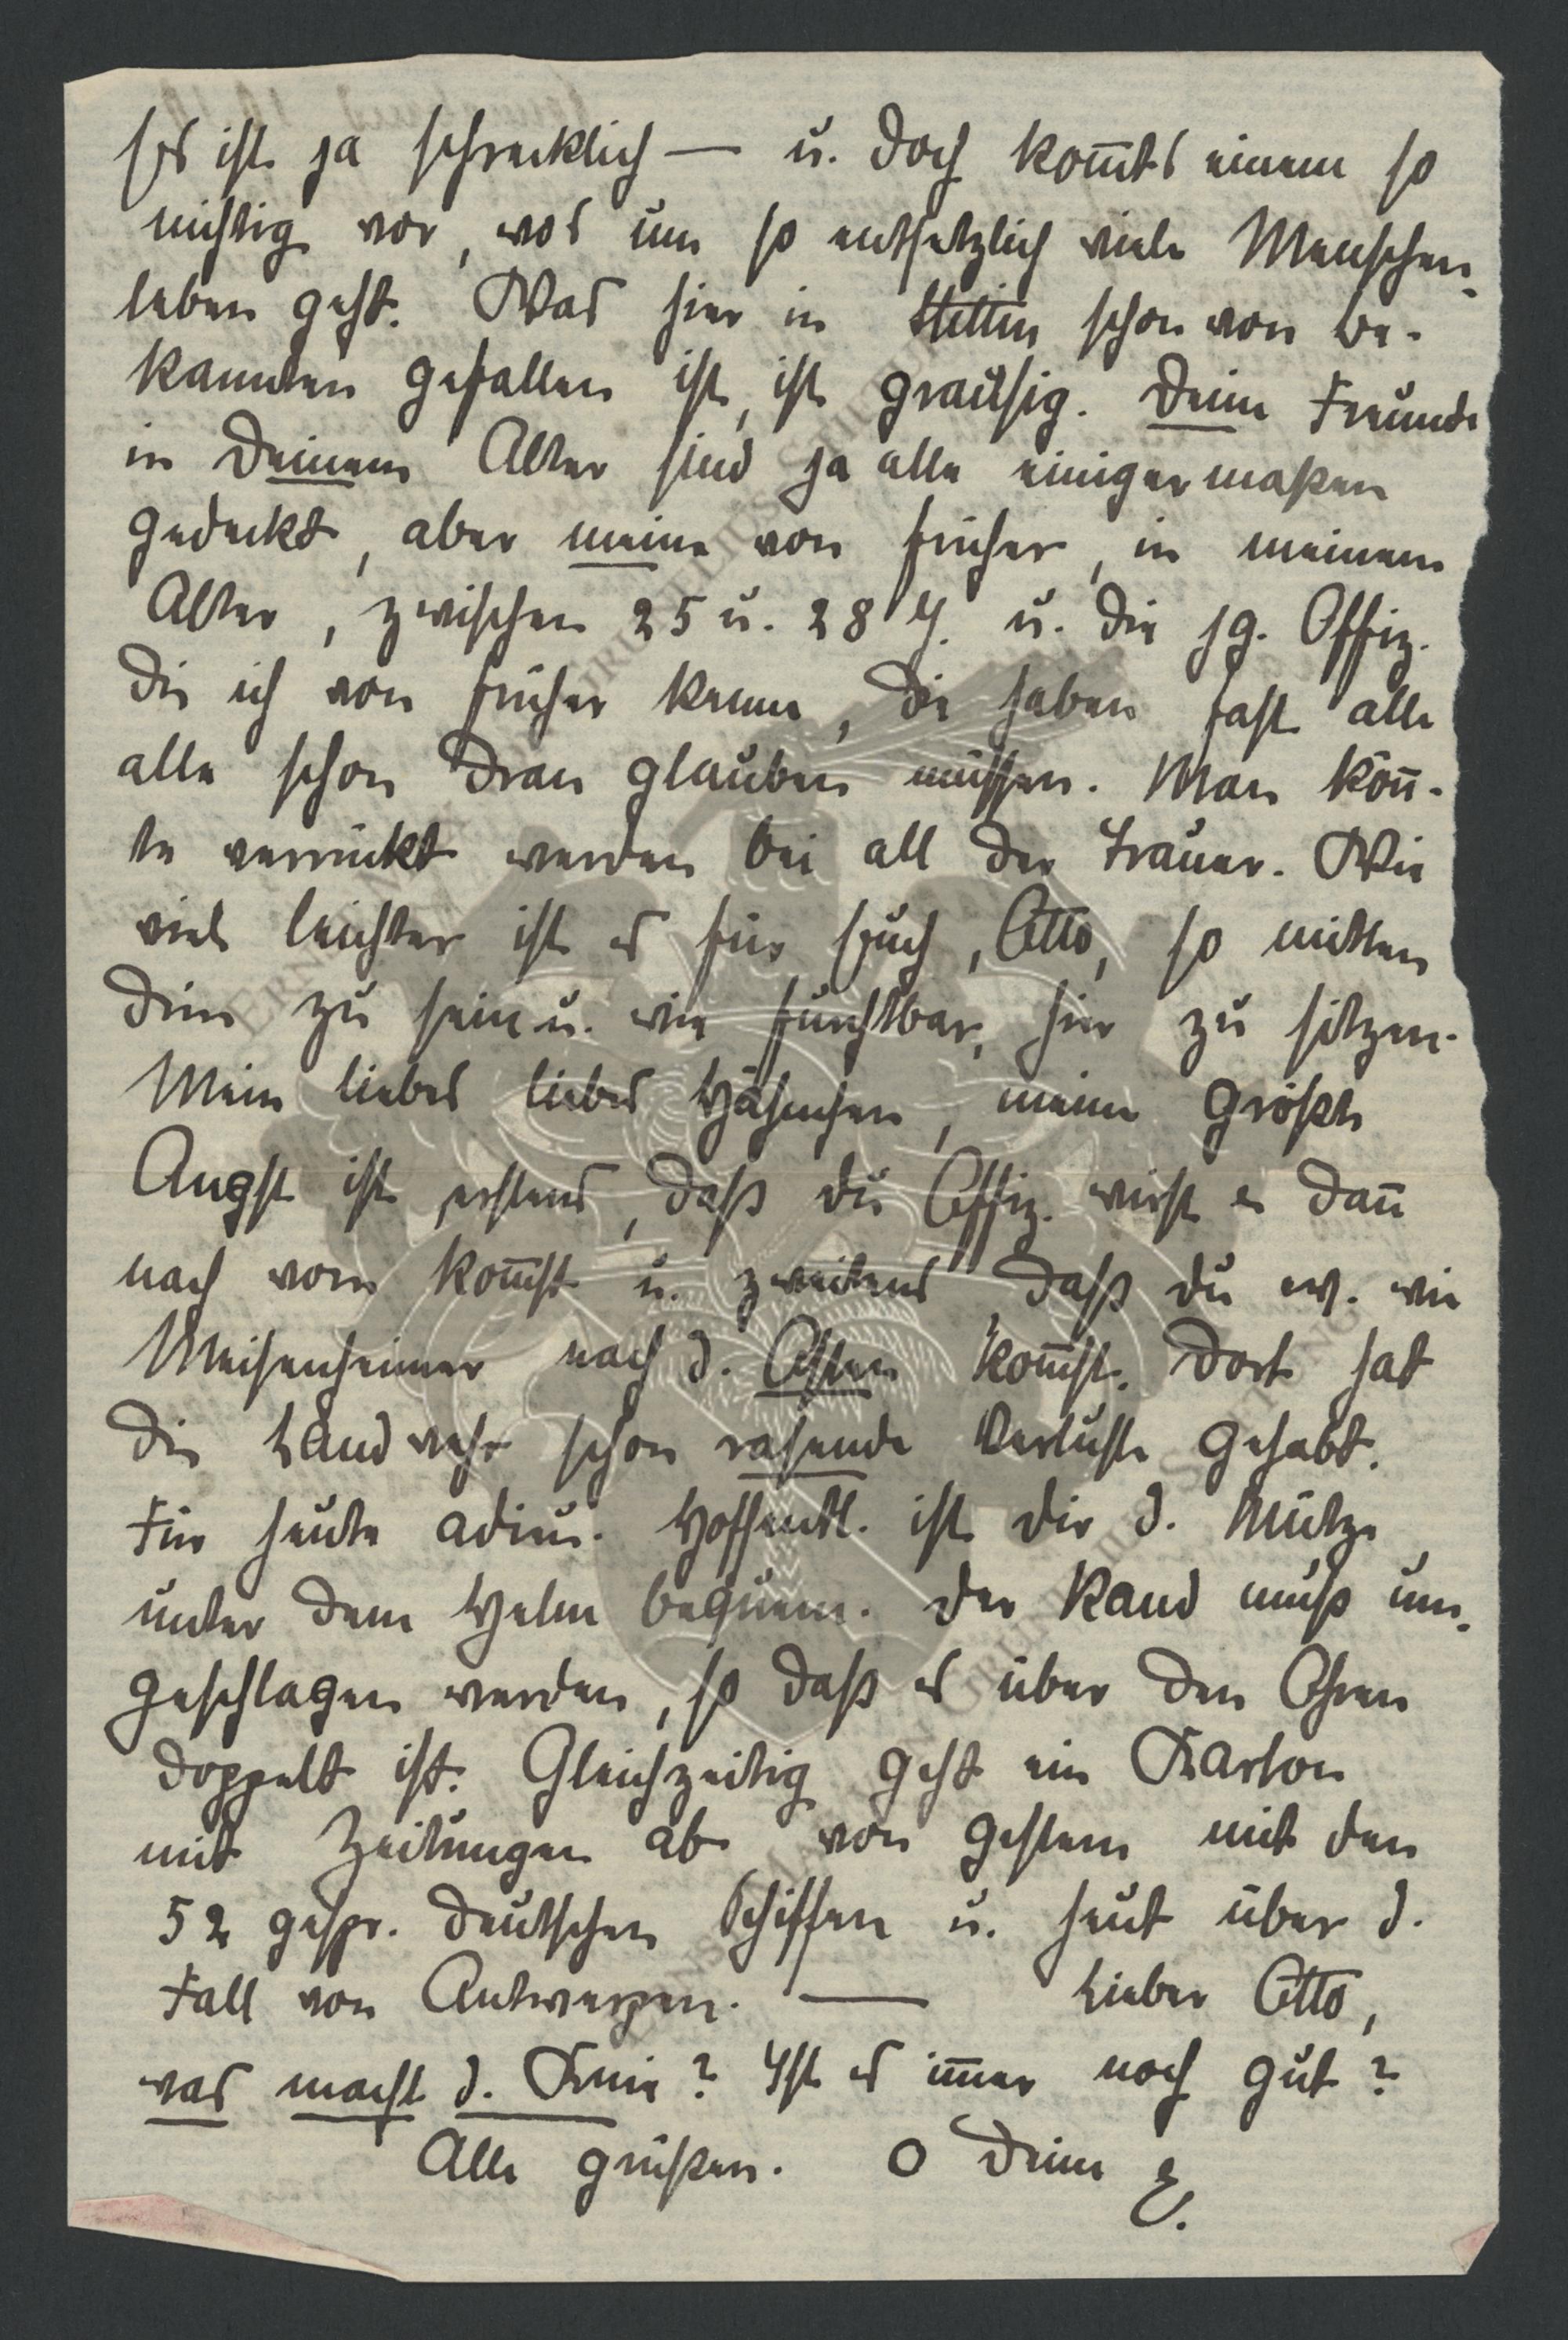 Es ist ja schrecklich — u. doch kom̄ts einem so
nichtig vor, wos um so entsetzlich viele Menschen-
leben geht. Was hier in Stettin schon von Be-
kannten gefallen ist, ist grausig. Deine Freunde
in Deinem Alter sind ja alle einigermaßen
gedeckt, aber meine von früher, in meinem
Alter, zwischen 25 u. 28 J. u. die jg. Offiz.
die ich von früher kenne, die haben fast alle
alle schon dran glauben müssen. Man kön̄-
te verrückt werden bei all der Trauer. Wie
viel leichter ist es für Euch, Otto, so mitten
drin zu sein u. wie furchtbar, hier zu sitzen.
Mein liebes liebes Häschen, meine größte
Angst ist erstens, daß du Offiz. wirst u. dan̄
nach vorn kom̄st u. zweitens daß du ev. wie
Meisenheimer nach d. Osten kom̄st. Dort hat
die Landwehr schon rasende Verluste gehabt.
Für heute adieu. Hoffentl. ist dir d. Mütze
unter dem Helm bequem. Der Rand muß um-
geschlagen werden, so daß es über den Ohren
doppelt ist. Gleichzeitig geht ein Karton
mit Zeitungen ab von gestern mit den
52 gespr. deutschen Schiffen u. heut über d.
Fall von Antwerpen. — Lieber Otto,
was macht d. Knie? Ist es im̄er noch gut?
Alle grüßen. O Deine E.